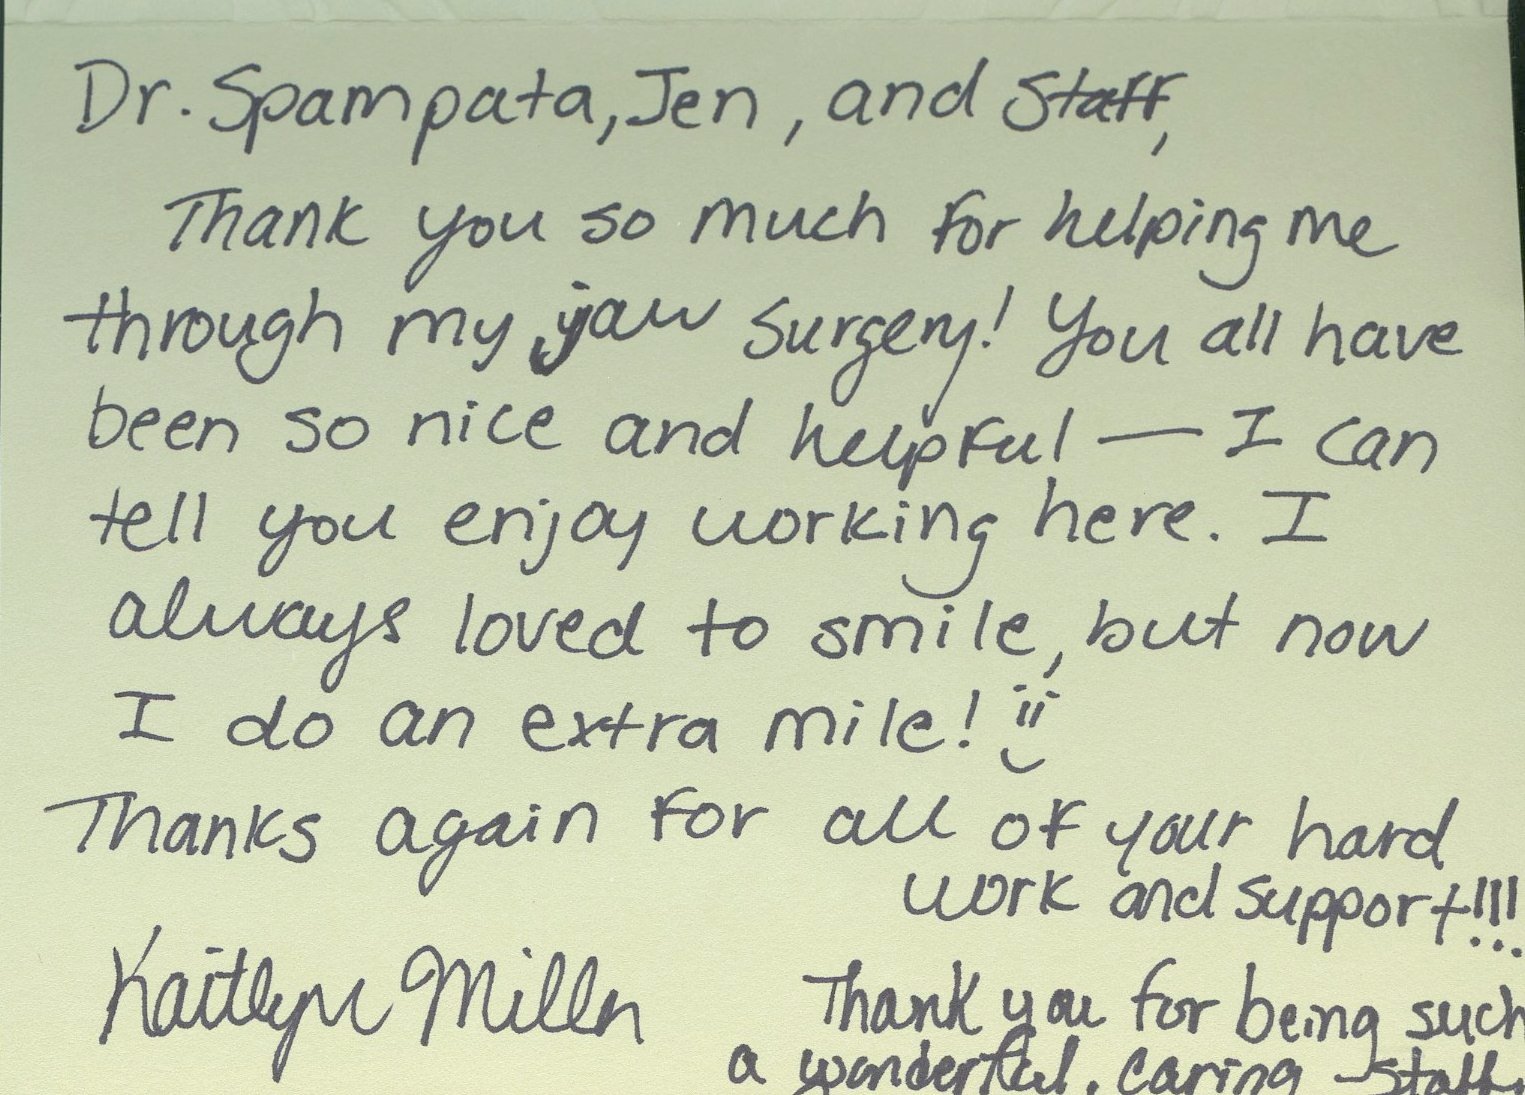 Dr. Spampata, Jen, and Staff,
Thank you so much for helping me
through my jaw surgery! You all have
been so nice and helpful — I can
tell you enjoy working here. I
always loved to smile, but now
I do an extra mile! :)
Thanks again for all of your hard
work and support!!!
Kaitlyn Miller
Thank you for being such
a wonderful, caring staff